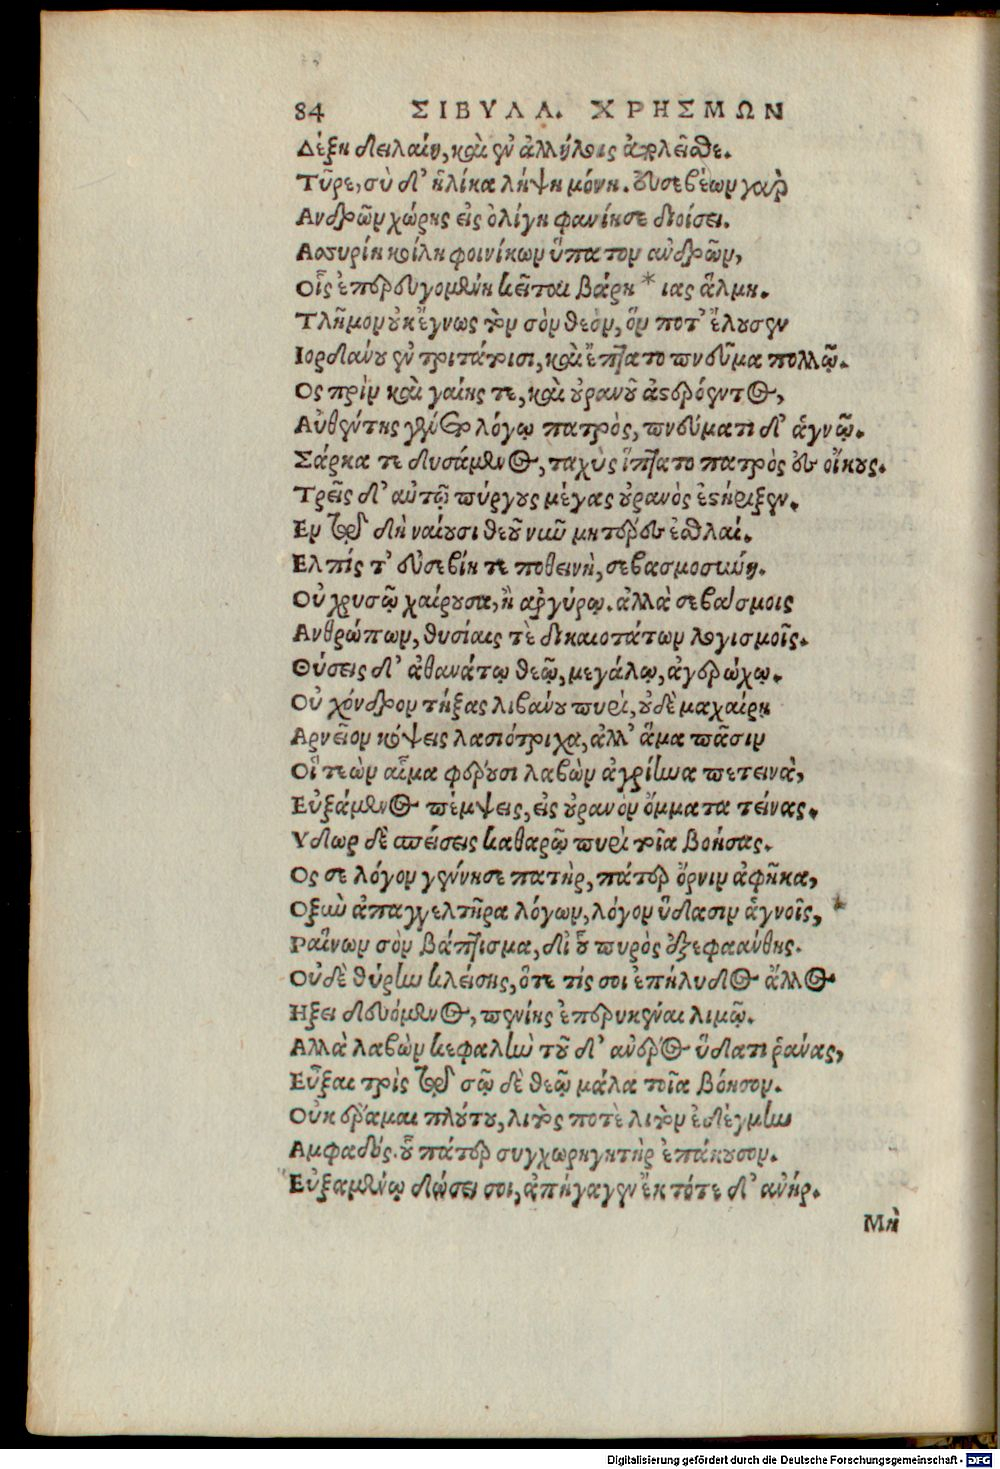 84 ΣΙΒΥΛΛ. ΧΡΗΣΜΩΝ
Δέξῃ δειλαίη, καὶ ἐν ἀλλήλοις ἀπλεῖσθε.
Τῦρε, σὺ δ' ἡλίκα λήψῃ μόνη. εὐσεβέων γαρ
Ανδρῶν χώρης εἰς ὀλίγη φανίησε διοίσει.
Ασσυρίη κοίλη φοινίκων ὕπατον ἀνδρῶν,
Οἷς ἐπερευγομένη κεῖται βάρη * ιας ἅλμη.
Τλῆμον οὐκ ἔγνως τὸν σὸν θεὸν, ὅν ποτ' ἔλουσεν
Ιορδάνου ἐν τριτάτοισι, καὶ ἔπτατο πνεῦμα πολλῷ.
Ος πρὶν καὶ γαίης τε, καὶ οὐρανοῦ ἀστερόεντος,
Αὐθέντης γένετο λόγῳ πατρὸς, πνεύματι δ' ἁγνῷ.
Σάρκα τε δυσάμενος, ταχὺς ἵπτατο πατρὸς ἐς οἴκους.
Τρεῖς δ' αὐτῷ πύργους μέγας οὐρανὸς ἐστήριξεν.
Εν τοῖς δὴ ναίουσι θεοῦ νῦν μητέρες ἐσθλαί.
Ελπίς τ' εὐσεβίη τε ποθεινὴ, σεβασμοσύνη.
Οὐ χρυσῷ χαίρουσα, ἢ ἀργύρῳ. ἀλλὰ σεβάσμοις
Ανθρώπων, θυσίαις τὲ δικαιοτάτων λογισμοῖς.
Θύσεις δ' ἀθανάτῳ θεῷ, μεγάλῳ, ἀγερώχῳ.
Οὐ χόνδρον τήξας λιβάνου πυρὶ, οὐδὲ μαχαίρῃ
Αρνεῖον κόψεις λασιότριχα, ἀλλ' ἅμα πᾶσιν
Οἵ τεὼν αἷμα φέρουσι λαβὼν ἀγρίωα πετεινὰ,
Εὐξάμενος πέμψεις, εἰς οὐρανὸν ὄμματα τείνας.
Υδωρ δὲ σπείσεις καθαρῷ πυρὶ τοῖα βοήσας.
Ος σε λόγον γέννησε πατὴρ, πάτερ ὄρνιν ἀφῆκα,
Οξὺν ἀπαγγελτῆρα λόγων, λόγον ὕδασιν ἁγνοῖς,
Ραίνων σὸν βάπτισμα, δι' οὗ πυρὸς ἐξεφαάνθης.
Οὐδὲ θύρην κλείσης, ὅτε τίς σοι ἐπήλυδος ἄλλος
Ηξει δευόμενος, πενίης ἐπερυκέναι λιμῷ.
Αλλὰ λαβὼν κεφαλὴν τοῦ δ' ἀνέρος ὕδατι ῥάνας,
Εὖξαι τρὶς τοῖς σῷ δὲ θεῷ μάλα τοῖα βόησον.
Οὐκ ἔραμαι πλούτου, λιτὸς ποτὲ λιτὸν ἐδέγμην
Αμφαδὸς. οὗ πάτερ συγχωρηγητὴρ ἐπάκουσον.
Εὐξαμένῳ δώσει σοι, ἀπήγαγεν ἔκτότε δ' ἀνήρ.
Μὴ
Digitalisierung gefördert durch die Deutsche Forschungsgemeinschaft - DFG